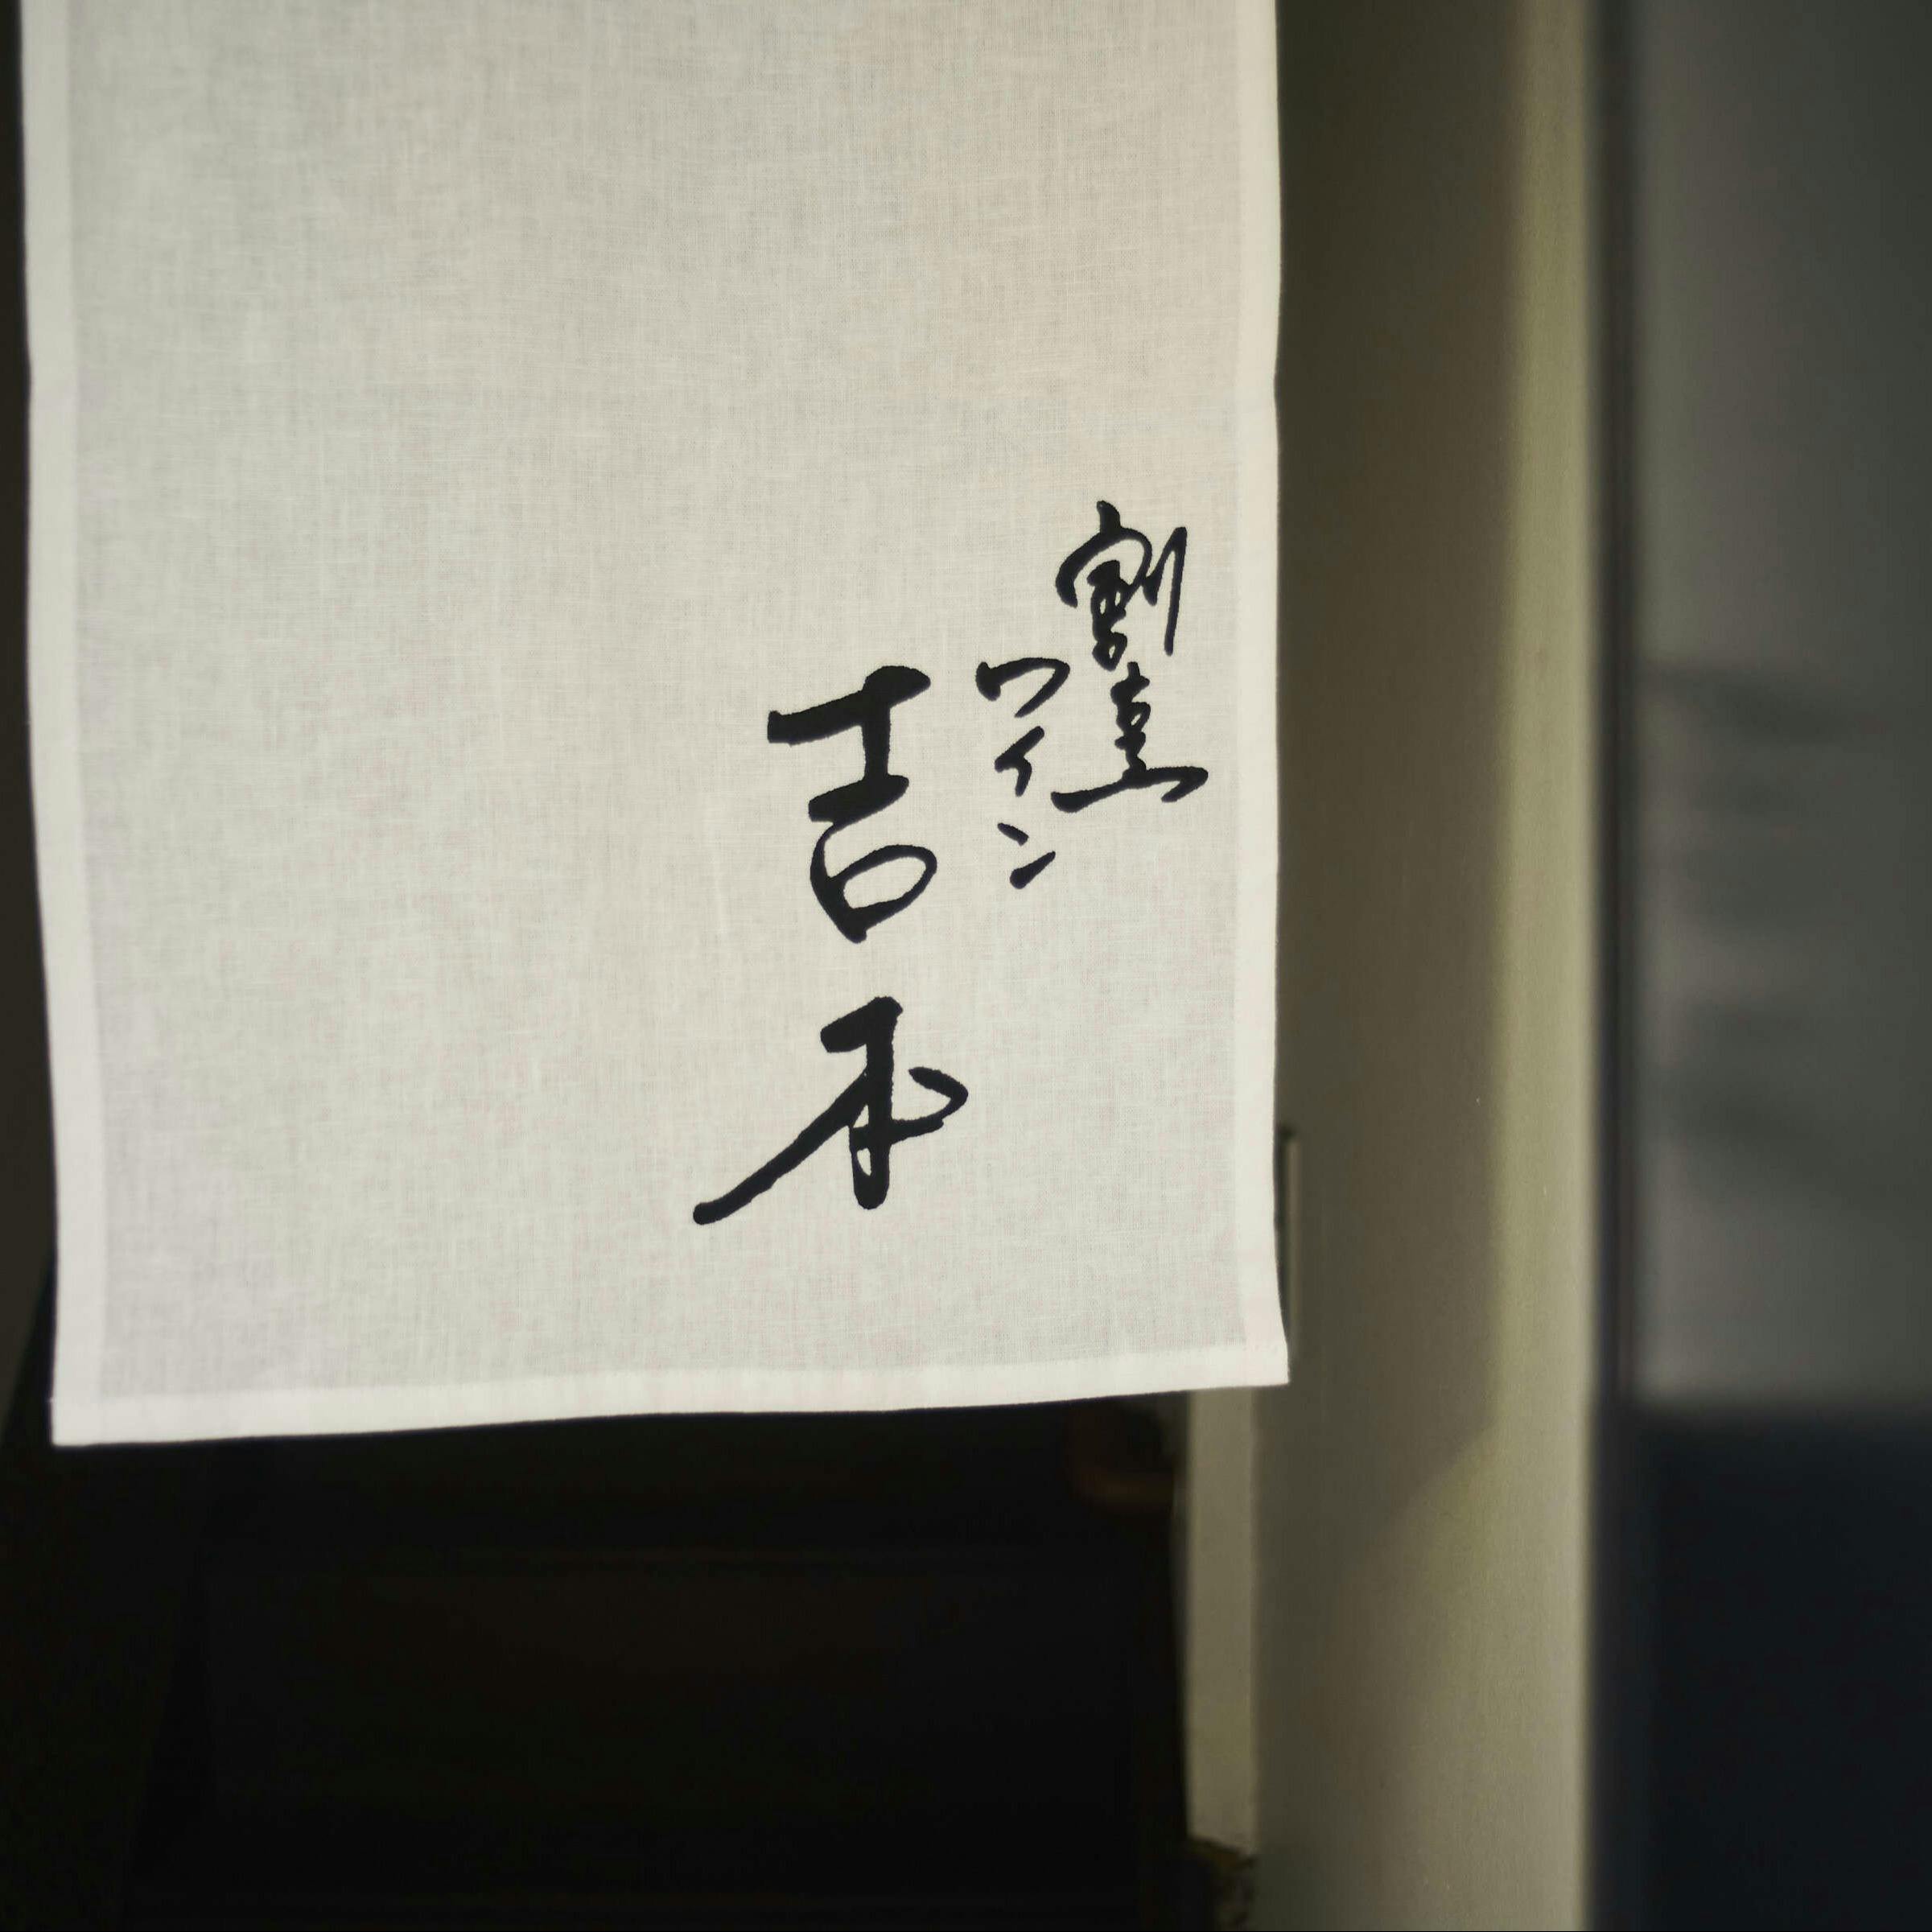 割烹
ワイン
吉本